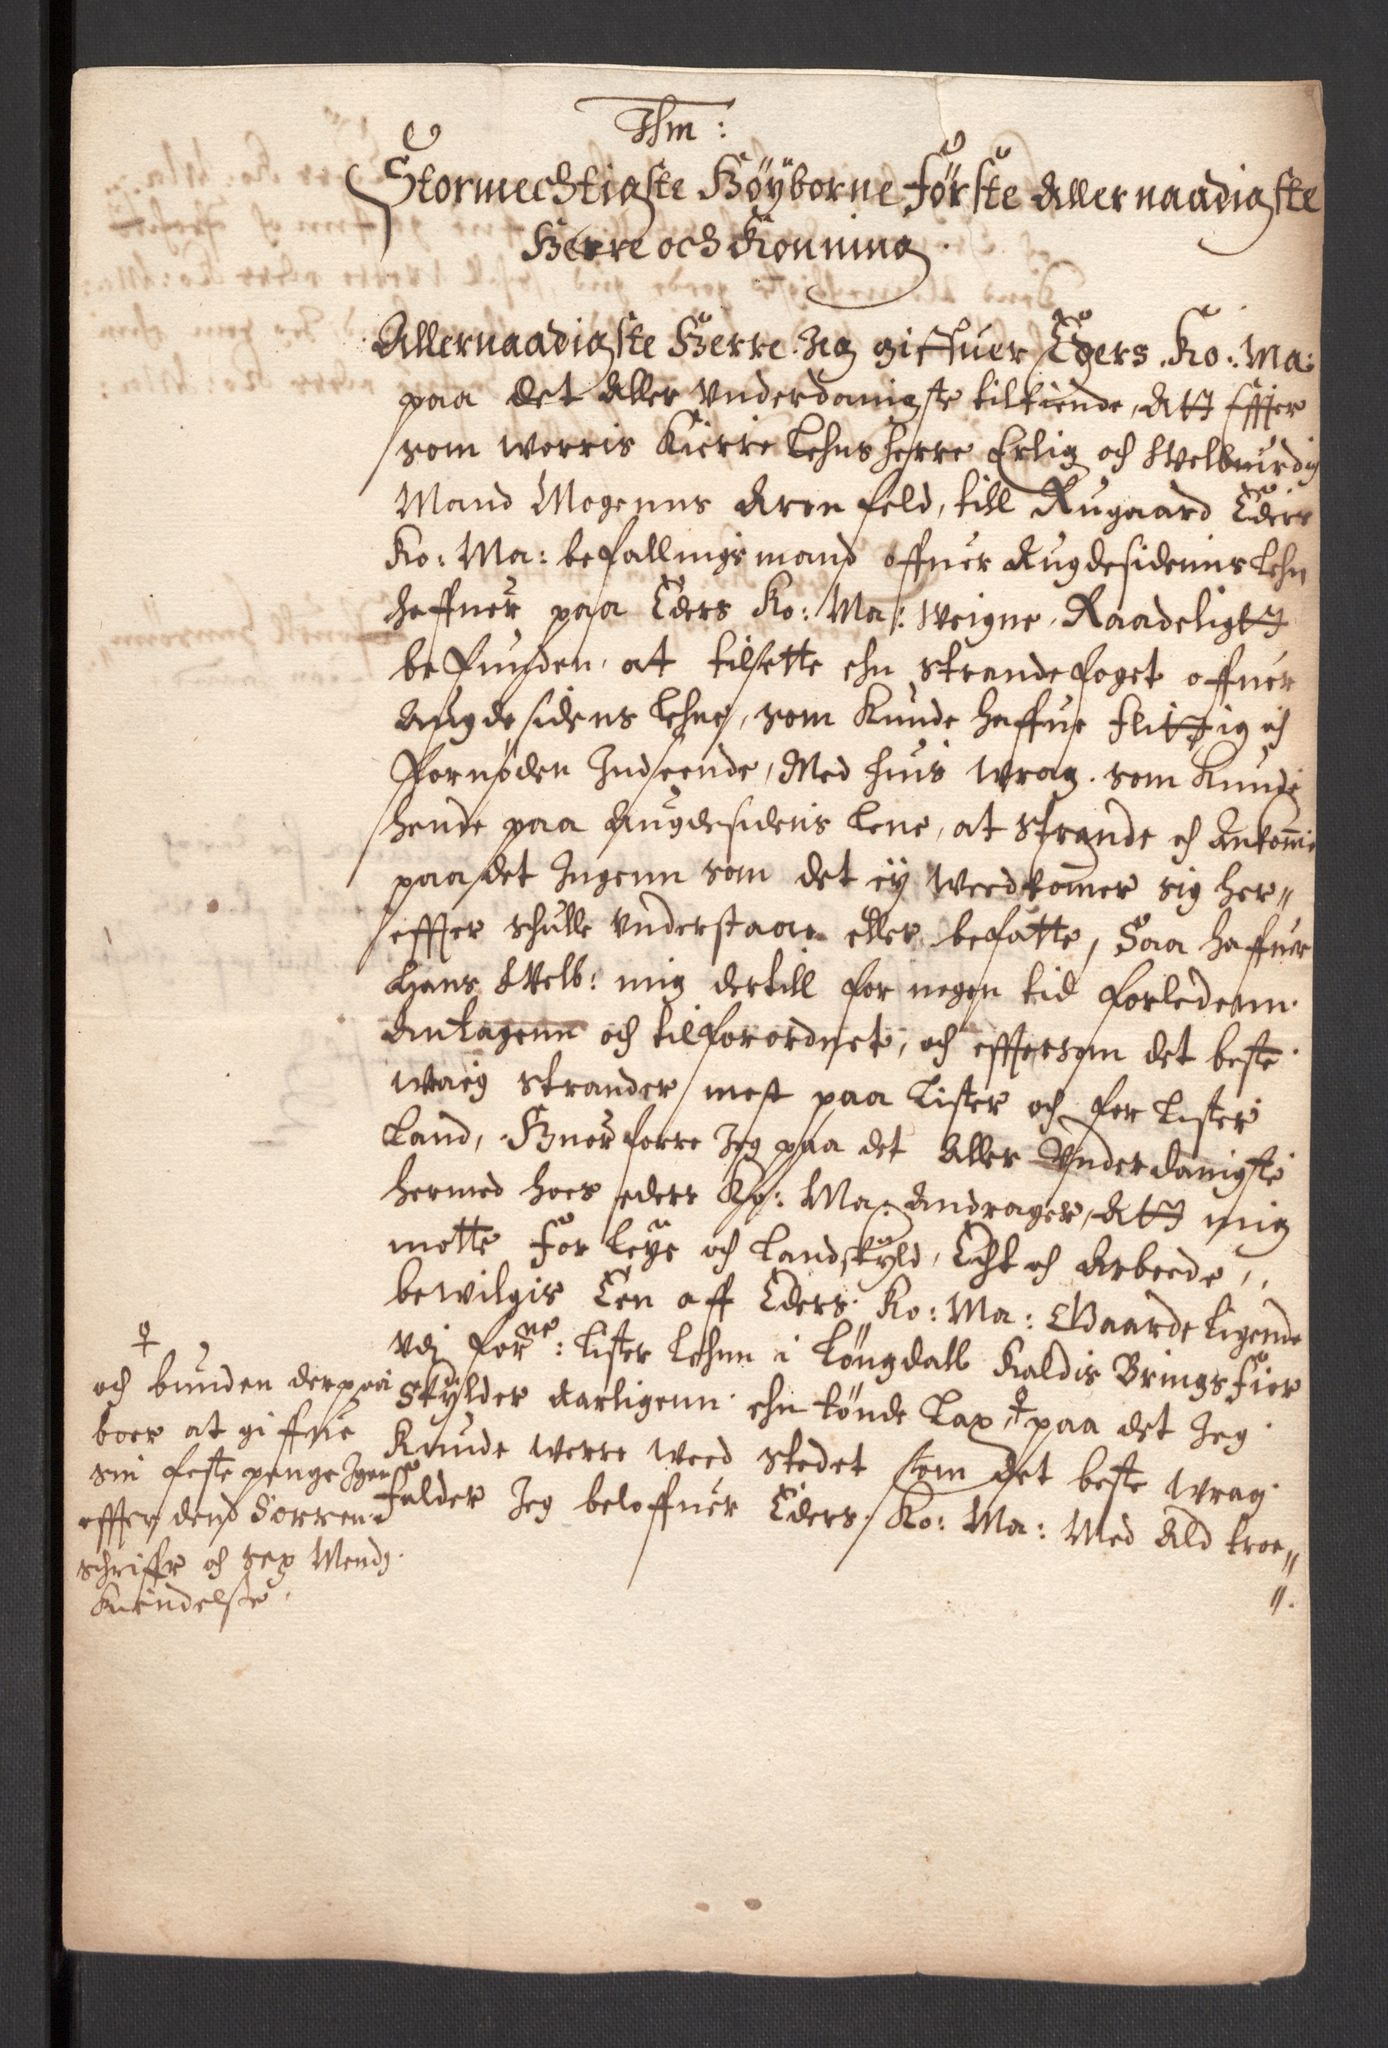 Ihm:
Stormechtigste Høyborne Første Allernaadigste
Herre och Konning.
Allernaadigste Herre. Jeg giffuer Eders. Ko: Ma:
paa det Aller vnderdanigste tilkiende, Att effter
som worris Kierre Lehnsherre Erlig och Welbuirdig
Mand Mogenns Aronfeld, till Rugaard Eders
Ko: Ma: befallingsmand offuer Augdesidenns Lehn
haffuer paa Eders Ko: Ma: Weigne, Raadeligtt
befunden, at tilsette ehn strandefoget offuer
Augdesidens Lehne, som Kunde haffue flittig och
fornøden Indseende, Med huis wrag. som Kunde
hende paa Augdesidens Lene, at strande och Ankomme
paa det Ingenn som det ey weedkommer sig her"
effter schulle vnderstaae eller befatte, Saa haffuer
Hans Welb: mig dertill for nogen tid forledenn
Antagenn och tilforordnet, och efftersom det beste
wrag strander mest paa Lister och for Lister
Land, Huorforre Jeg paa det Aller Vnderdanigste
hermed hoes eders Ko: Ma: Andrager, Att mig
motte for Leye och Landskyld, Echt och Arbeede,
bewilgis Een aff Eders. Ko: Ma: Gaarde ligende
vdj for.ne: Lister Lehnn i Løngdall Kaldis Bringsfier
Skylder Aarligenn ehn tønde Lax, ♀ paa det Jeg
Kunde werre weed stedet som det beste wrag
falder Jeg beloffuer Eders. Ko: Ma: Med Ald troe"
♀
och bunden derpaa
boer at giffue
sin feste penge Igen
effter dend Sorren
schriffr och sex Mends
Kiendelse.